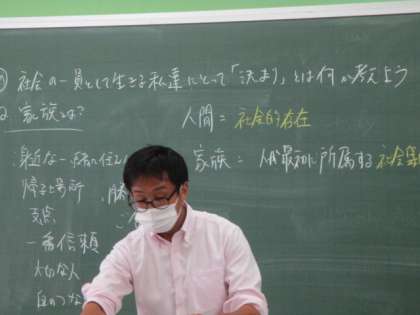 社会の一員として生きる私達にとって「決まり」とは何か考えよう
家族とは?
人間 = 社会的存在
身近な一緒に住む
家族 = 人が最初に所属する社会集
帰る場所
支点
一番信頼
大切な人
血のつな